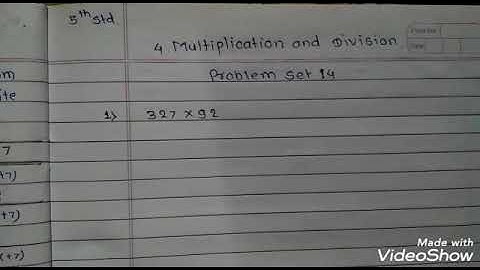 5th Std.
4. Multiplication and Division
Problem Set 14
1) 327 × 92
om
ite
7
+7)
+7)
(+7)
Made with
VideoShow